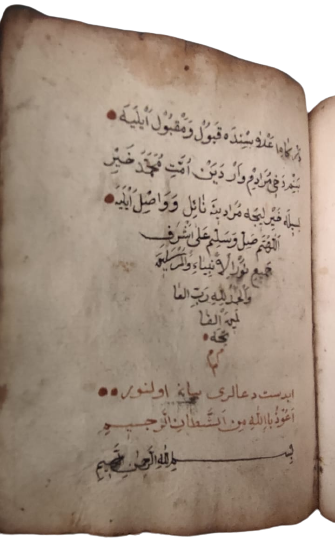 اَعْلاسِنْدَه قَبُولْ وَمَقْبُولْ اَيْلِيَه
بَنِمْ دَخِى مُرَادِمْ وَارْ دَيَنْ اُمَّتِ مُحَمَّدْ خَيْرْ
خَيْرْ مُرَادِينَه نَائِلْ وَوَاصِلْ اَيْلِيَه
اَللّٰهُمَّ صَلِّ وَسَلِّمْ عَلٰى اَشْرَفِ
جَمِيعِ نُورِ الْاَنْبِيَاءِ وَالْمُرْسَلِينَ
وَالْحَمْدُ لِلّٰهِ رَبِّ الْعَا
لَمِينَ الْفَا
تحه
ابدست دعالرى بيان اولنور
اَعُوذُ بِاللّٰهِ مِنَ الشَّيْطَانِ الرَّجِيمِ
بِسْمِ اللّٰهِ الرَّحْمٰنِ الرَّحِيمِ